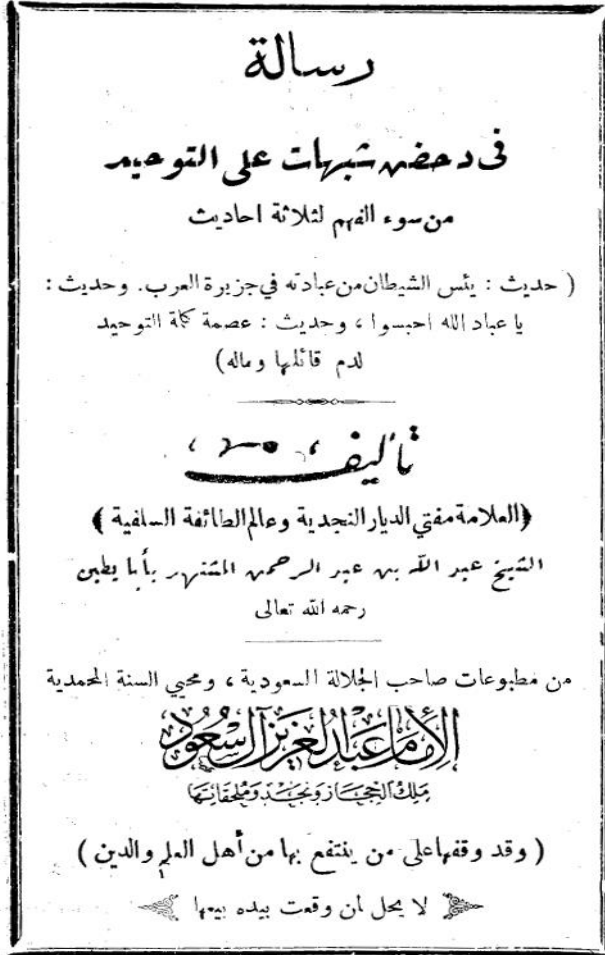 رسالة
فى دحض شبهات على التوحيد
من سوء الفهم لثلاثة احاديث
( حديث : يئس الشيطان من عبادته في جزيرة العرب . وحديث :
يا عباد الله احبسوا ، وحديث : عصمة كلمة التوحيد
لدم قائلها وماله )
تأليف
﴿ العلامة مفتي الديار النجدية وعالم الطائفة السلفية ﴾
الشيخ عبد الله بن عبد الرحمن المشتهر بأبا بطين
رحمه الله تعالى
من مطبوعات صاحب الجلالة السعودية ، ومحيي السنة المحمدية
الإمام عبد العزيز آل سعود
ملك الحجاز ونجد وملحقاتها
( وقد وقفها على من ينتفع بها من أهل العلم والدين )
لا يحل لمن وقعت بيده بيعها